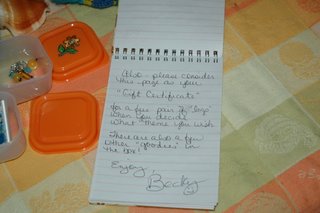 Also - please consider
this page as your
"Gift Certificate"
for a free pair of "legs"
when you decide
what theme you wish
There are also a few
other "goodies" in
the box!
Enjoy,
Becky